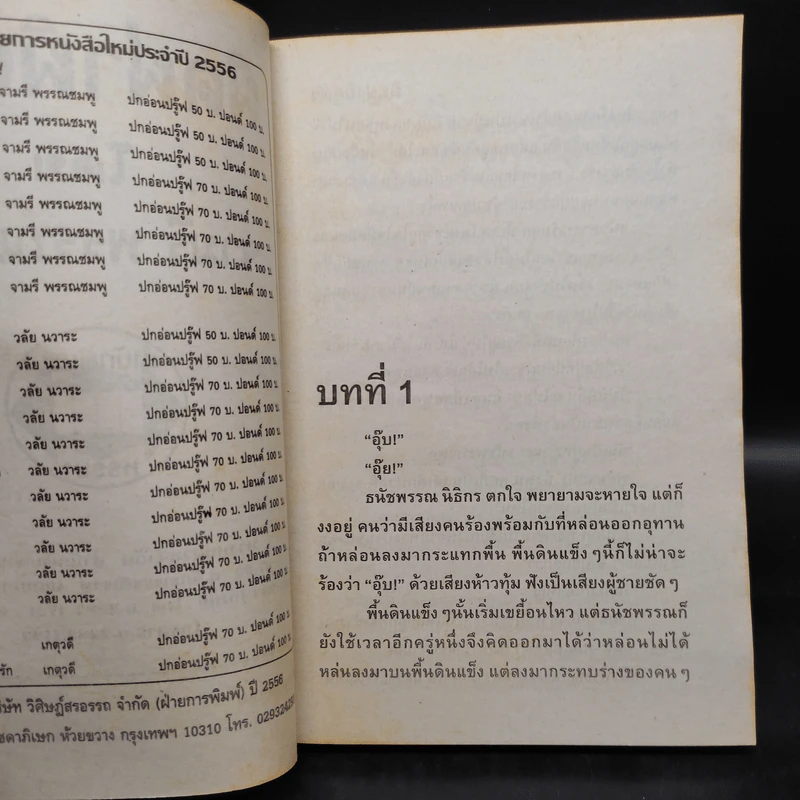 ยการหนังสือใหม่ประจำปี 2556
จามรี พรรณชมพู ปกอ่อนปรู๊ฟ 50 บ. ปอนด์ 100 บ.
จามรี พรรณชมพู ปกอ่อนปรู๊ฟ 50 บ. ปอนด์ 100 บ.
จามรี พรรณชมพู ปกอ่อนปรู๊ฟ 50 บ. ปอนด์ 100 บ.
จามรี พรรณชมพู ปกอ่อนปรู๊ฟ 70 บ. ปอนด์ 100 บ.
จามรี พรรณชมพู ปกอ่อนปรู๊ฟ 70 บ. ปอนด์ 100 บ.
จามรี พรรณชมพู ปกอ่อนปรู๊ฟ 70 บ. ปอนด์ 100 บ.
จามรี พรรณชมพู ปกอ่อนปรู๊ฟ 70 บ. ปอนด์ 100 บ.
จามรี พรรณชมพู ปกอ่อนปรู๊ฟ 70 บ. ปอนด์ 100 บ.
วลัย นวาระ ปกอ่อนปรู๊ฟ 50 บ. ปอนด์ 100 บ.
วลัย นวาระ ปกอ่อนปรู๊ฟ 50 บ. ปอนด์ 100 บ.
วลัย นวาระ ปกอ่อนปรู๊ฟ 70 บ. ปอนด์ 100 บ.
วลัย นวาระ ปกอ่อนปรู๊ฟ 70 บ. ปอนด์ 100 บ.
วลัย นวาระ ปกอ่อนปรู๊ฟ 70 บ. ปอนด์ 100 บ.
วลัย นวาระ ปกอ่อนปรู๊ฟ 70 บ. ปอนด์ 100 บ.
วลัย นวาระ ปกอ่อนปรู๊ฟ 70 บ. ปอนด์ 100 บ.
วลัย นวาระ ปกอ่อนปรู๊ฟ 70 บ. ปอนด์ 100 บ.
วลัย นวาระ ปกอ่อนปรู๊ฟ 70 บ. ปอนด์ 100 บ.
วลัย นวาระ ปกอ่อนปรู๊ฟ 70 บ. ปอนด์ 100 บ.
วลัย นวาระ ปกอ่อนปรู๊ฟ 70 บ. ปอนด์ 100 บ.
เกตุวดี ปกอ่อนปรู๊ฟ 70 บ. ปอนด์ 100 บ.
รัก เกตุวดี ปกอ่อนปรู๊ฟ 70 บ. ปอนด์ 100 บ.
ริษัท วิศิษฏ์สรอรรถ จำกัด (ฝ่ายการพิมพ์) ปี 2556
ชดาภิเษก ห้วยขวาง กรุงเทพฯ 10310 โทร.
บทที่ 1
“อุ๊บ!”
“อุ๊ย!”
ธนัชพรรณ นิธิกร ตกใจ พยายามจะหายใจ แต่ก็
งงอยู่ คนว่ามีเสียงคนร้องพร้อมกับที่หล่อนออกอุทาน
ถ้าหล่อนลงมากระแทกพื้น พื้นดินแข็ง ๆนี้ก็ไม่น่าจะ
ร้องว่า “อุ๊บ!” ด้วยเสียงห้าวทุ้ม ฟังเป็นเสียงผู้ชายชัด ๆ
พื้นดินแข็ง ๆนั้นเริ่มเขยื้อนไหว แต่ธนัชพรรณก็
ยังใช้เวลาอีกครู่หนึ่งจึงคิดออกมาได้ว่าหล่อนไม่ได้
หล่นลงมาบนพื้นดินแข็ง แต่ลงมากระทบร่างของคน ๆ